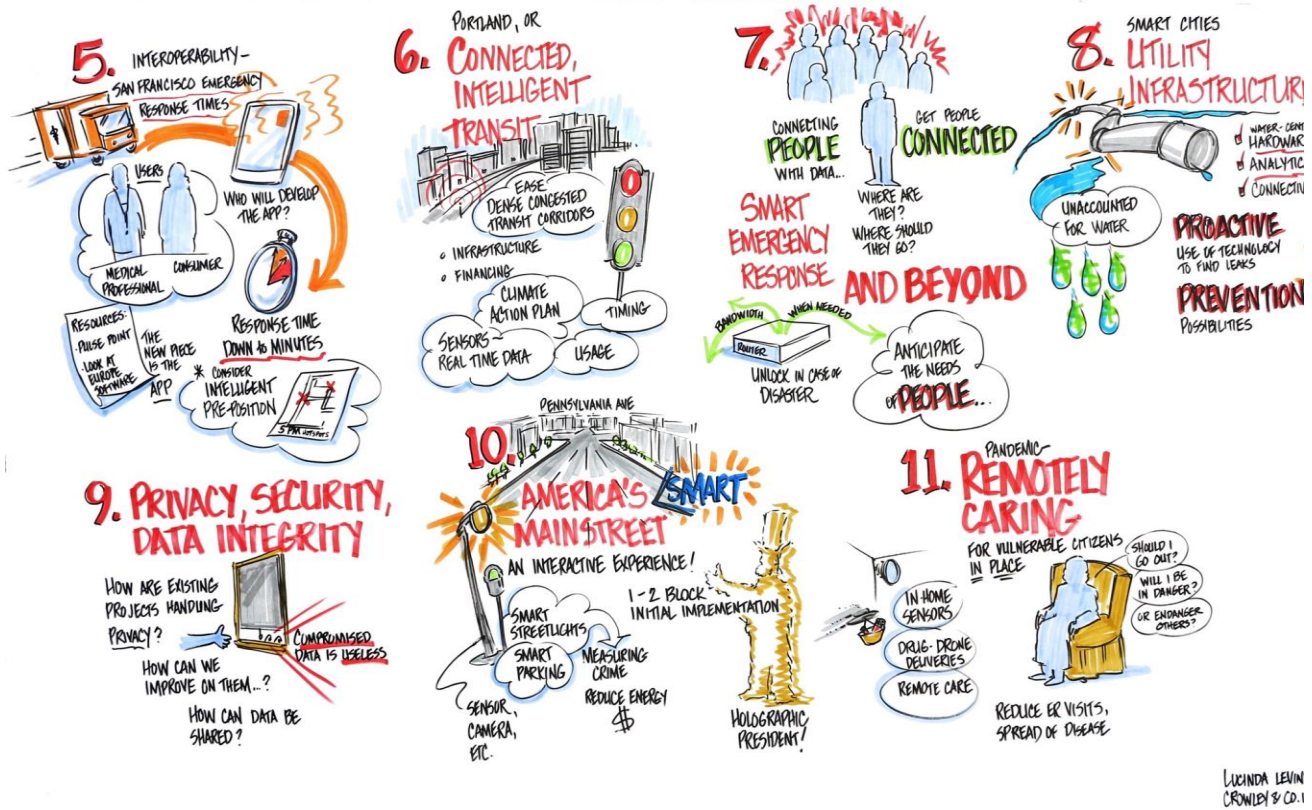 5. INTEROPERABILITY-
SAN FRANCISCO EMERGENCY
RESPONSE TIMES
USERS
MEDICAL
PROFESSIONAL
CONSUMER
WHO WILL DEVELOP
THE APP?
RESPONSE TIME
DOWN to MINUTES
RESOURCES:
· PULSE POINT
· LOOK AT
EUROPE
SOFTWARE
THE
NEW PIECE
IS THE
APP
* CONSIDER
INTELLIGENT
PRE-POSITION
5 PM HOTSPOTS
6. PORTLAND, OR
CONNECTED,
INTELLIGENT
TRANSIT
EASE
DENSE CONGESTED
TRANSIT CORRIDORS
o INFRASTRUCTURE
o FINANCING
CLIMATE
ACTION PLAN
TIMING
SENSORS~
REAL TIME DATA
USAGE
7.
CONNECTING
PEOPLE
WITH DATA...
GET PEOPLE
CONNECTED
WHERE ARE
THEY?
WHERE SHOULD
THEY GO?
SMART
EMERGENCY
RESPONSE
AND BEYOND
BANDWIDTH
WHEN NEEDED
ROUTER
UNLOCK IN CASE OF
DISASTER
ANTICIPATE
THE NEEDS
OF PEOPLE...
8. SMART CITIES
UTILITY
INFRASTRUCTURE
WATER-CENT
HARDWAR
ANALYTIC
CONNECTIV
UNACCOUNTED
FOR WATER
PROACTIVE
USE OF TECHNOLOGY
TO FIND LEAKS
PREVENTION
POSSIBILITIES
9. PRIVACY, SECURITY,
DATA INTEGRITY
HOW ARE EXISTING
PROJECTS HANDLING
PRIVACY?
HOW CAN WE
IMPROVE ON THEM...?
HOW CAN DATA BE
SHARED?
COMPROMISED
DATA IS USELESS
PENNSYLVANIA AVE
10.
AMERICA'S SMART
MAINSTREET
AN INTERACTIVE EXPERIENCE!
1-2 BLOCK
INITIAL IMPLEMENTATION
SMART
STREETLIGHTS
SMART
PARKING
MEASURING
CRIME
REDUCE ENERGY
$
SENSOR,
CAMERA,
ETC.
HOLOGRAPHIC
PRESIDENT!
11. PANDEMIC-
REMOTELY
CARING
FOR VULNERABLE CITIZENS
IN PLACE
SHOULD I
GO OUT?
WILL I BE
IN DANGER?
OR ENDANGER
OTHERS?
IN HOME
SENSORS
DRUG-DRONE
DELIVERIES
REMOTE CARE
REDUCE ER VISITS,
SPREAD OF DISEASE
LUCINDA LEVIN
CROWLEY & CO.